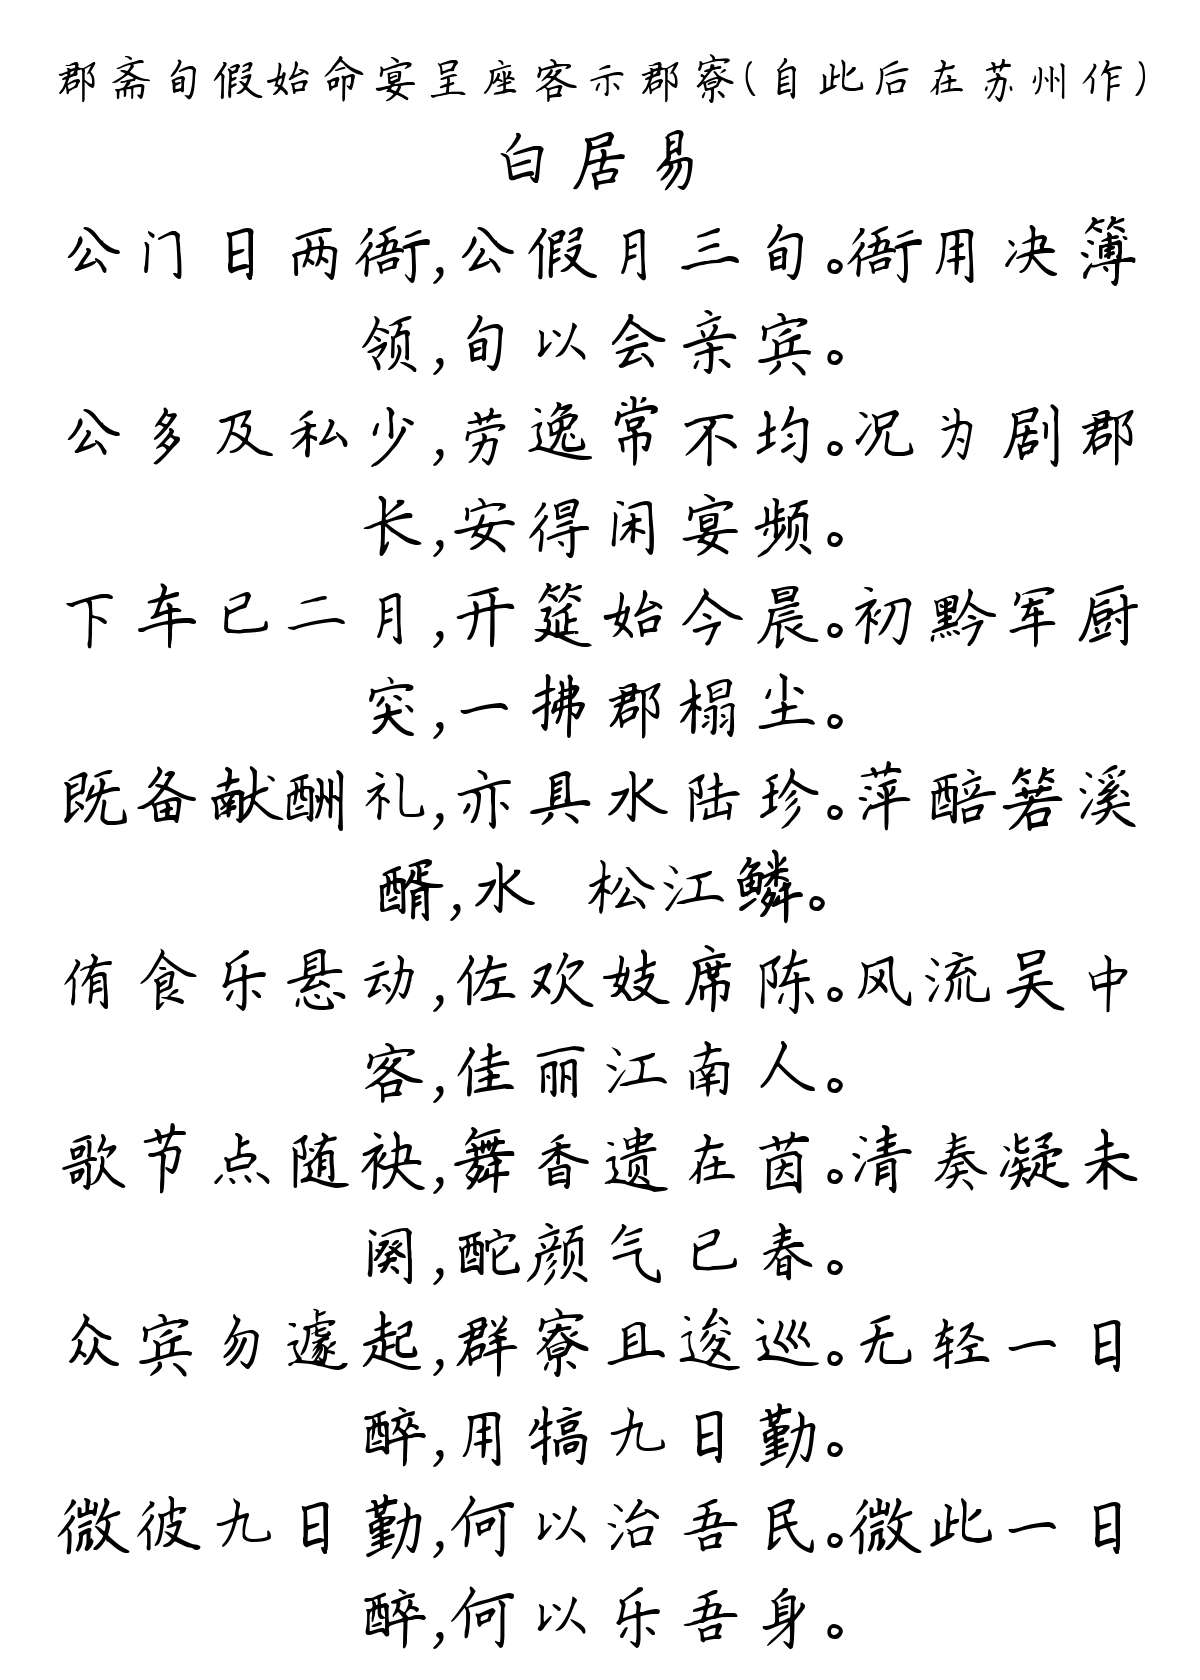 郡斋旬假始命宴呈座客示郡寮(自此后在苏州作)
白居易
公门日两衙,公假月三旬。衙用决簿
领,旬以会亲宾。
公多及私少,劳逸常不均。况为剧郡
长,安得闲宴频。
下车已二月,开筵始今晨。初黔军厨
突,一拂郡榻尘。
既备献酬礼,亦具水陆珍。萍醅箬溪
醑,水 松江鳞。
侑食乐悬动,佐欢妓席陈。风流吴中
客,佳丽江南人。
歌节点随袂,舞香遗在茵。清奏凝未
阕,酡颜气已春。
众宾勿遽起,群寮且逡巡。无轻一日
醉,用犒九日勤。
微彼九日勤,何以治吾民。微此一日
醉,何以乐吾身。